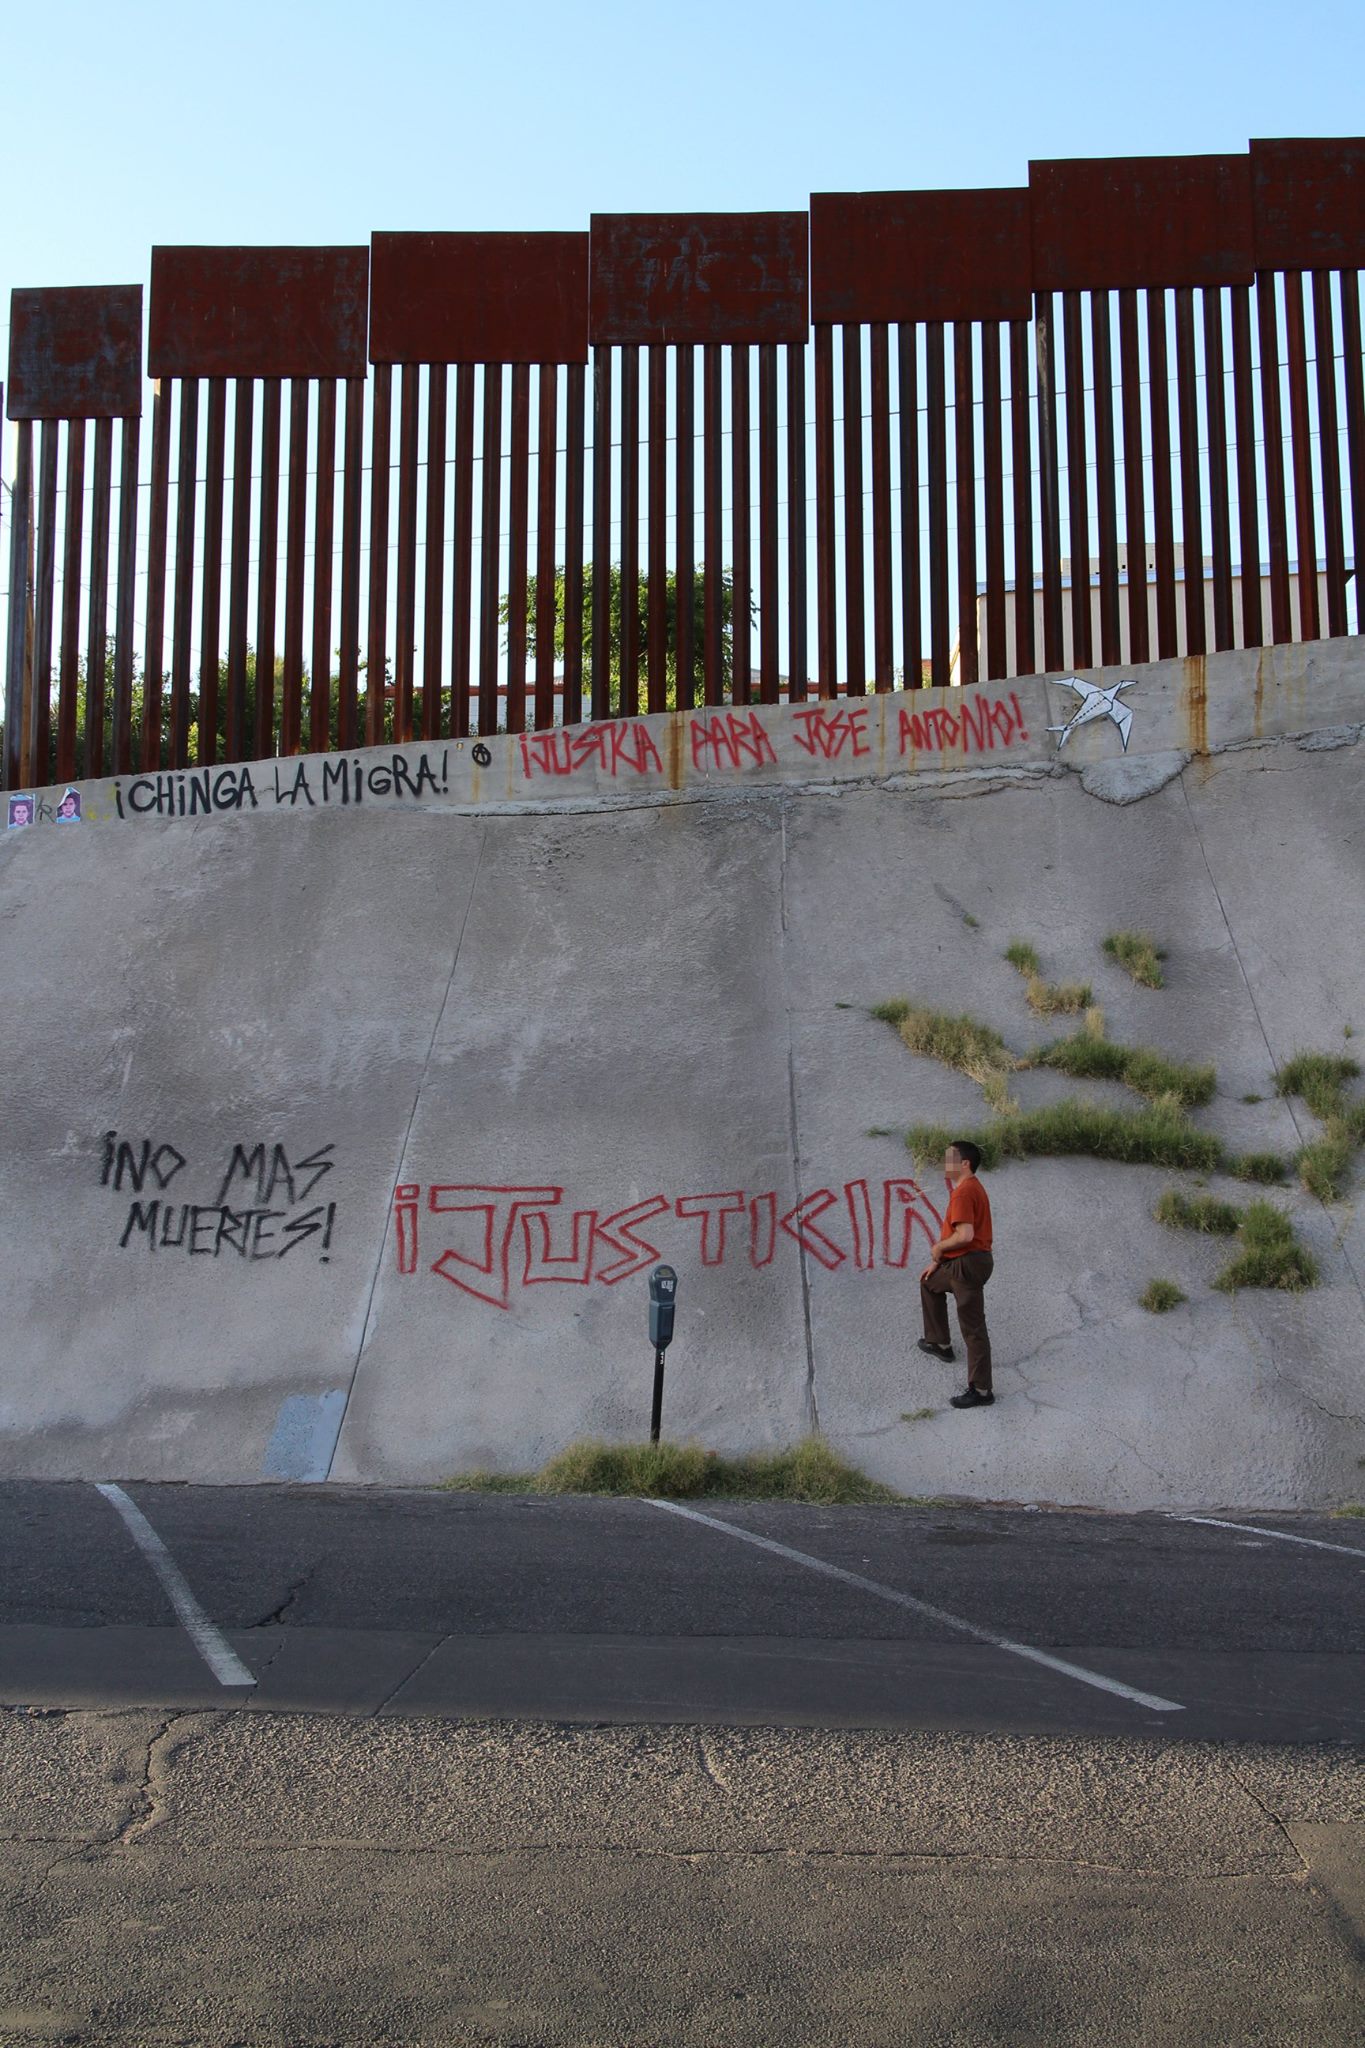 ¡CHINGA LA MIGRA!
¡JUSTKIA PARA JOSE ANTONIO!
¡NO MAS
MUERTES!
¡JUSTKIA